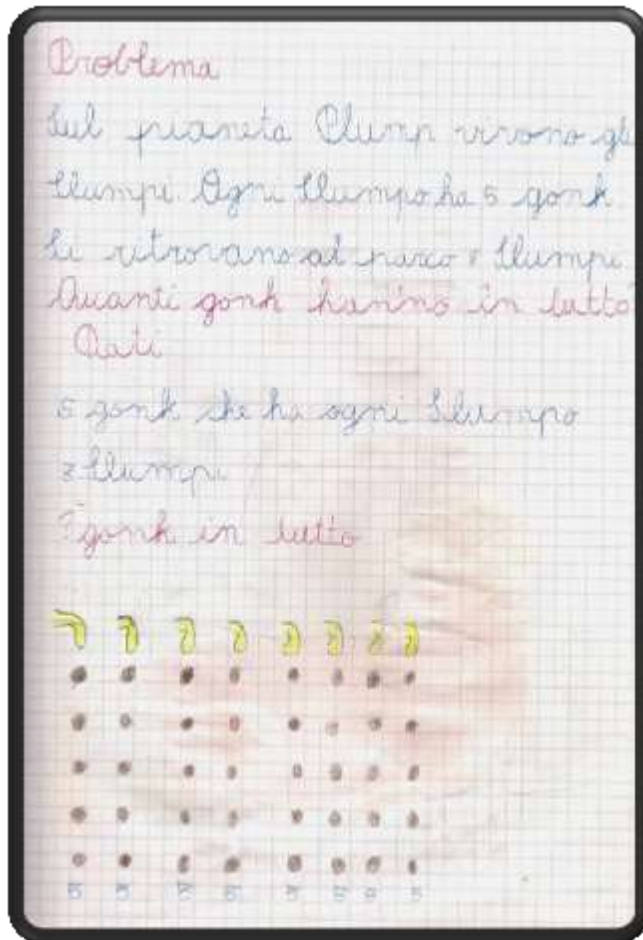 Problema
Sul pianeta Clump vivono gli
Slumpi. Ogni Slumpo ha 5 gonk
Si ritrovano al parco 8 Slumpi.
Quanti gonk hanno in tutto
Dati
5 gonk che ha ogni Slumpo
8 Slumpi
? gonk in tutto
5 5 5 5 5 5 5 5